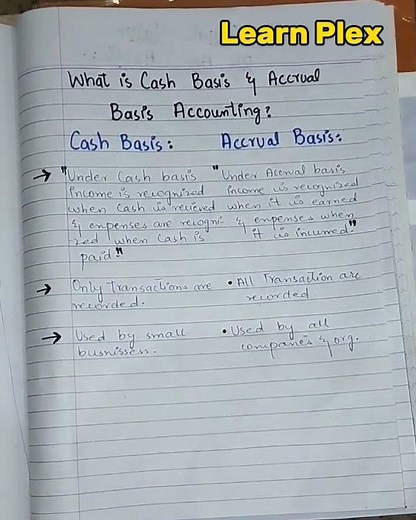 Learn Plex
What is Cash Basis & Accrual
Basis Accounting?
Cash Basis:
Accrual Basis:
→ "Under Cash basis
income is recognized
when cash is recieved
& expenses are recogni-
zed when cash is
paid"
"Under Accrual basis
income is recognized
when it is earned
& expenses when
it is incurred."
→ Only Transactions are
recorded.
• All Transaction are
recorded
→ Used by small
busnisses.
• Used by all
companies & org.